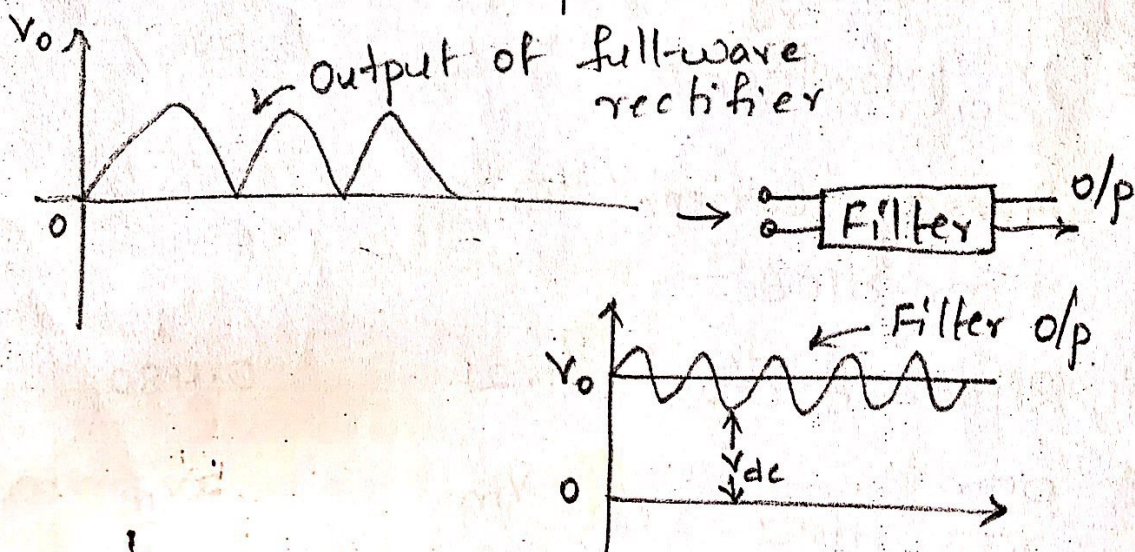 Vo
Output of full-wave
rectifier
0
Filter
o/p
Filter o/p.
Vo
Vdc
0